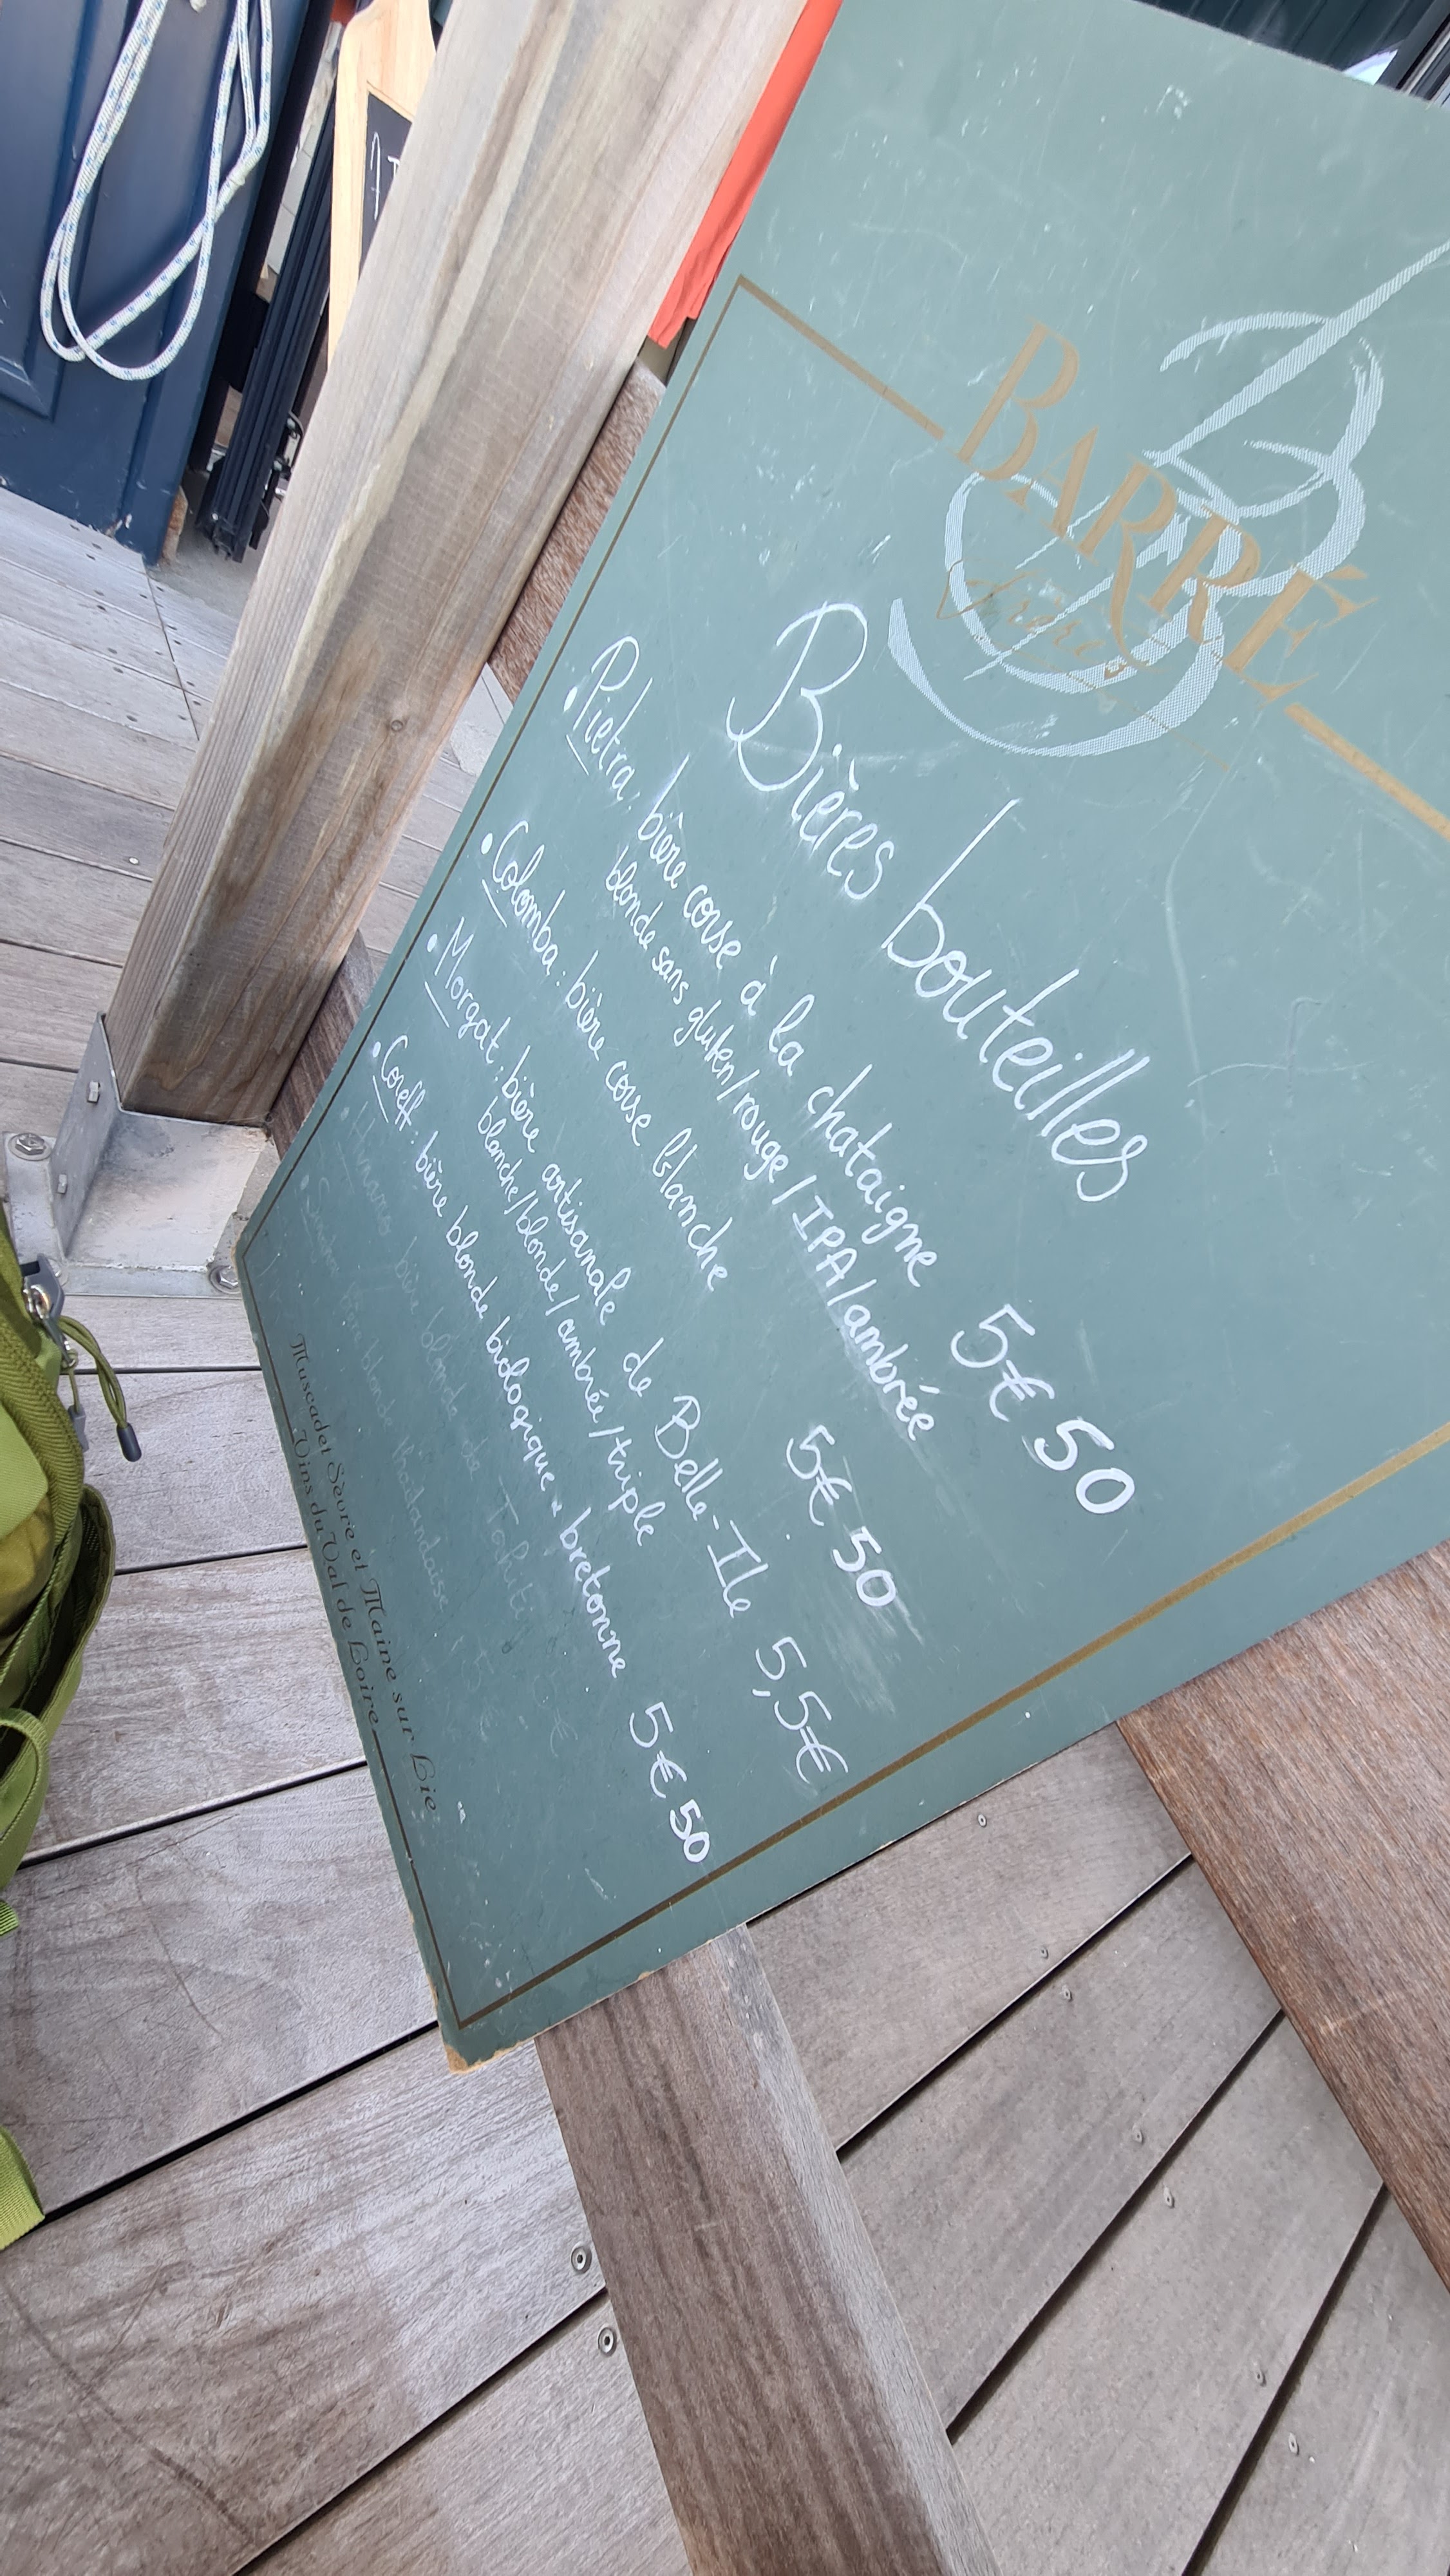 BARRÉ
Frères
Bières bouteilles
• Pietra : bière corse à la chataigne 5€50
blonde sans gluten/rouge/IPA/ambrée
• Colomba : bière corse blanche 5€50
• Morgat : bière artisanale de Belle-Ile 5,5€
blanche/blonde/ambrée/triple
• Coreff : bière blonde biologique bretonne 5€50
• Hinano bière blonde de Tahiti
bière blonde hollandaise
Muscadet Sèvre et Maine sur Lie
Vins du Val de Loire